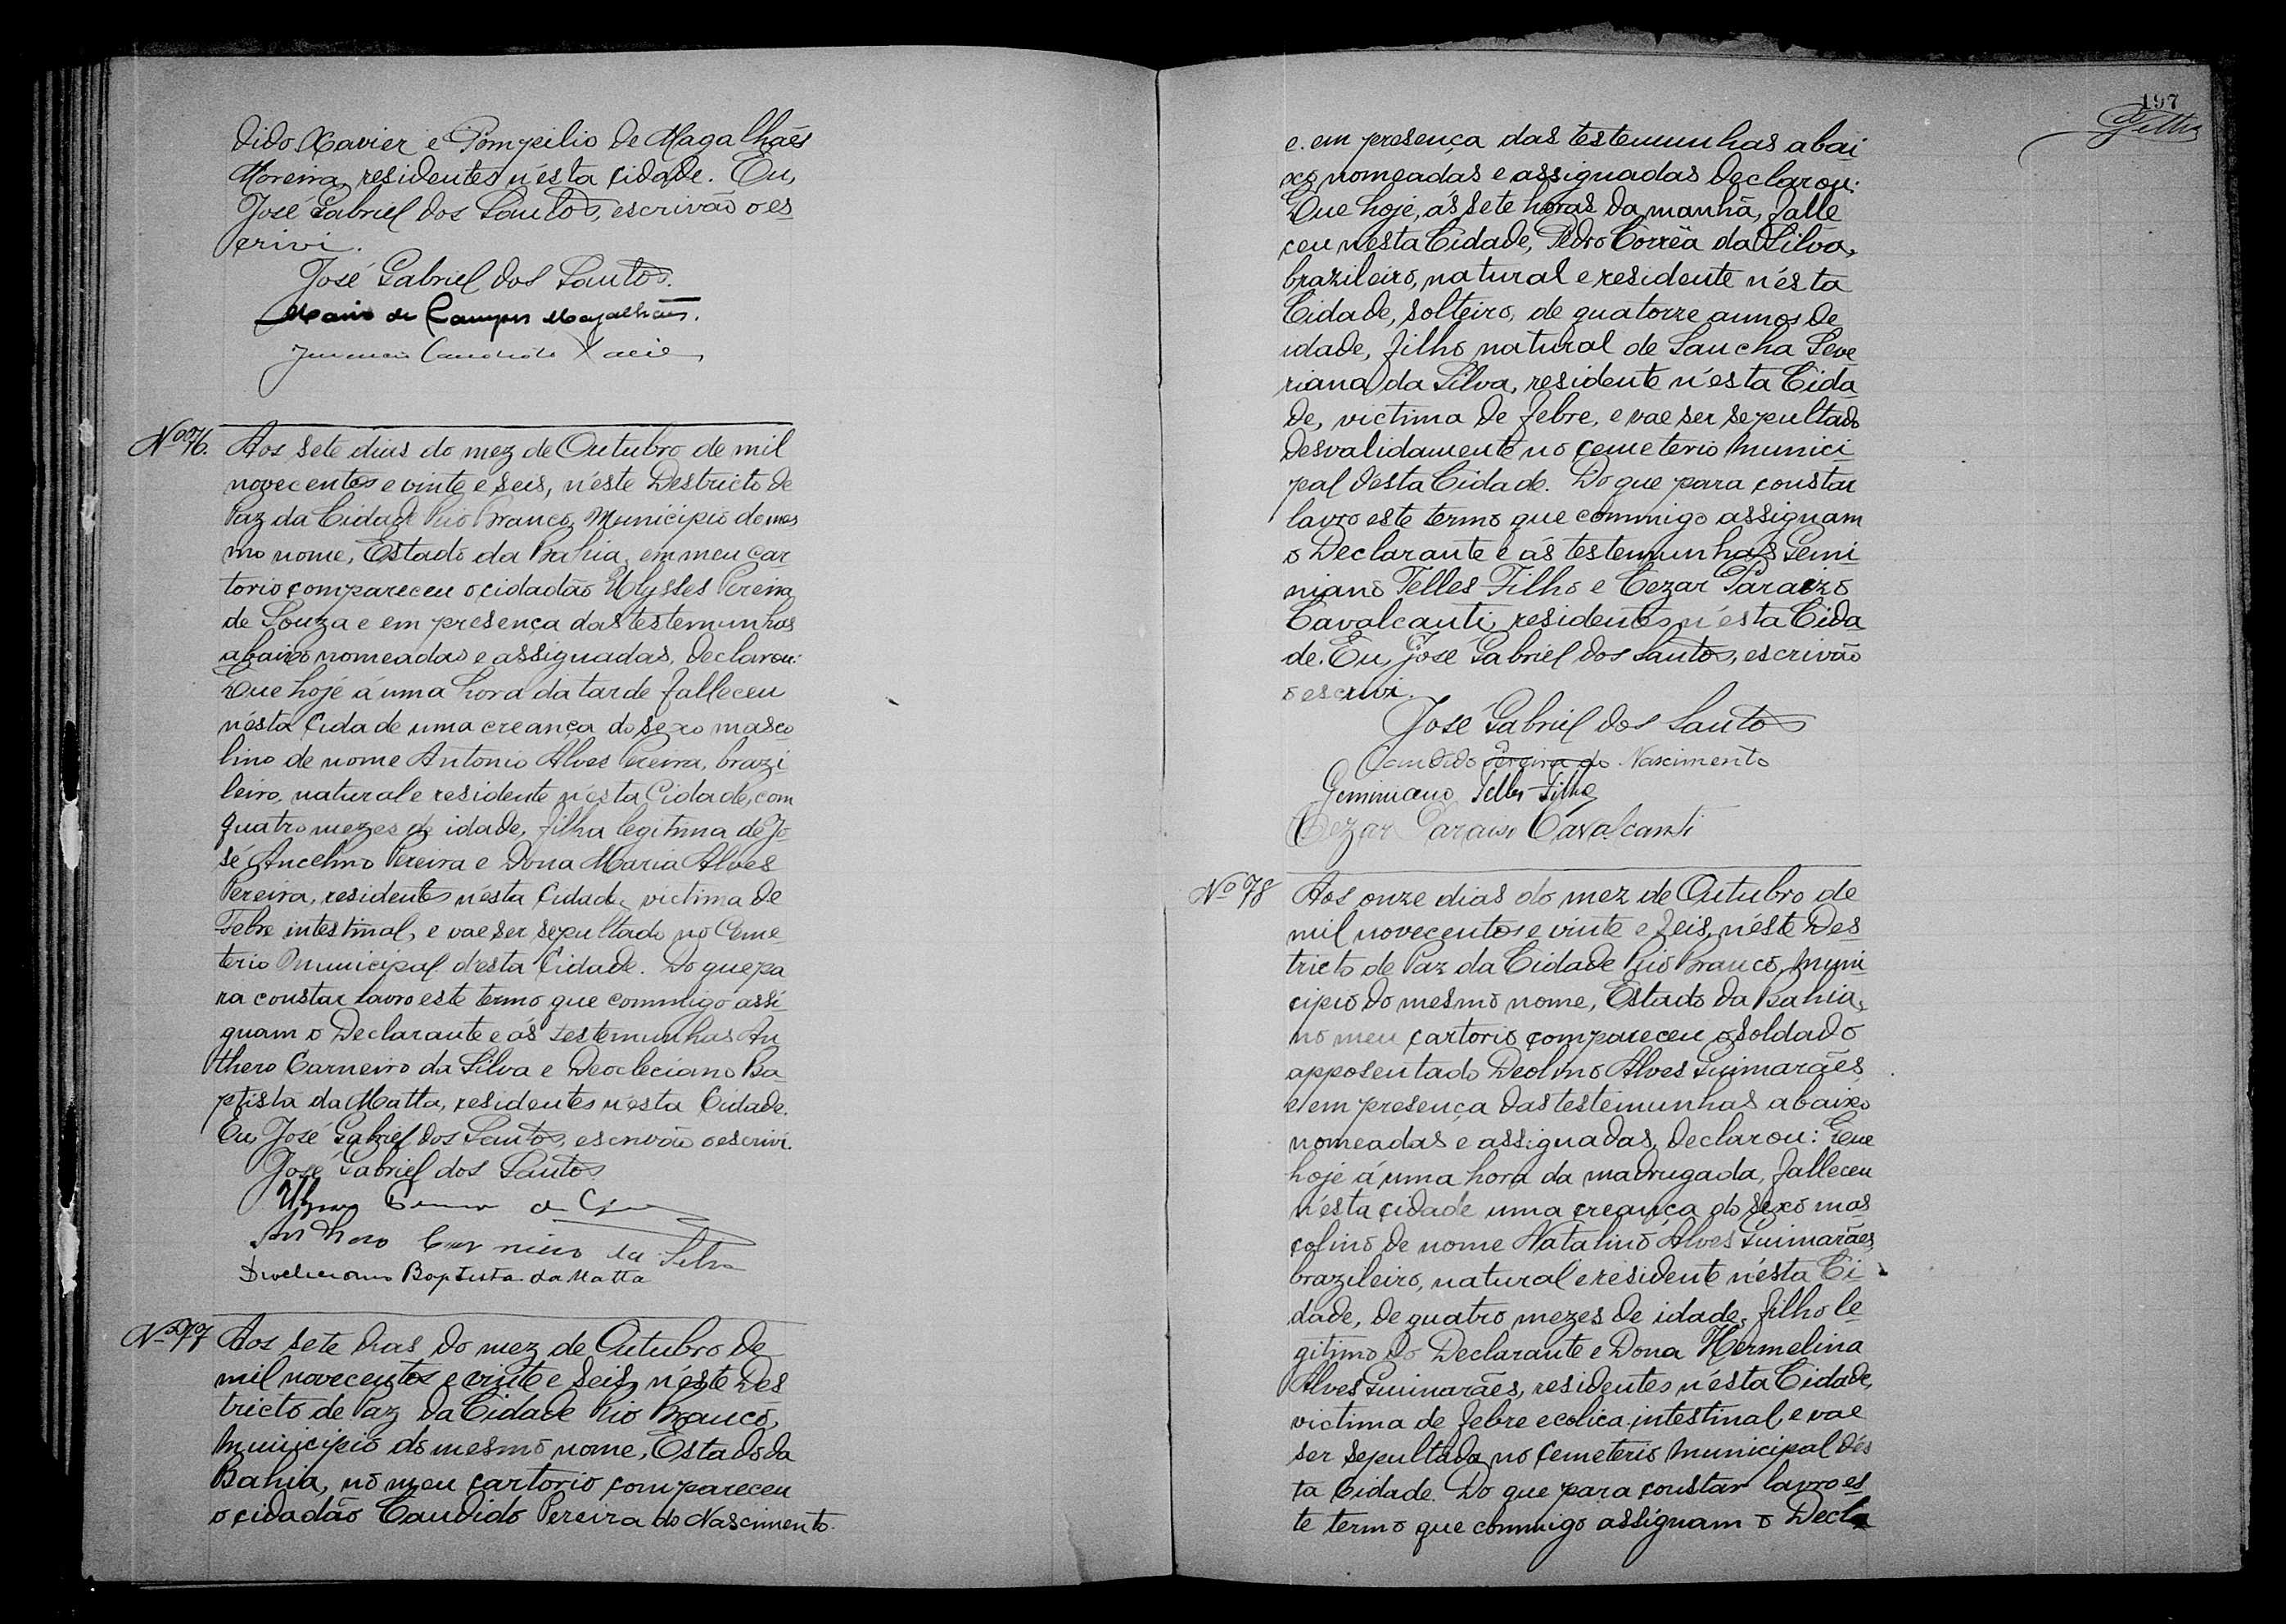 dido Xavier e Pompilio de Magalhães
Moreira, residentes n'ésta cidade. Eu,
José Gabriel dos Santos, escrivão o es
crivi.
José Gabriel dos Santos.
Mario de Campos Magalhães.
Candido Xavier
Nº 76. Aos sete dias do mez de Outubro de mil
novecentos e vinte e seis, n'éste Destricto de
Paz da Cidade Rio Branco, Municipio do mes
mo nome, Estado da Bahia, em meu car
torio compareceu o cidadão Ulysses Pereira
de Souza e em presença das testemunhas
abaixo nomeadas e assignadas, declarou:
Que hojé á uma hora da tarde falleceu
n'ésta Cidade uma creança do sexo masco
lino de nome Antonio Alves Pereira, brazi
leiro, natural e residente n'ésta Cidade, com
quatro mezes de idade, filha legitima de Jo
sé Ancelmo Pereira e Dona Maria Alves
Pereira, residentes n'ésta Cidade, victima de
Febre intestinal, e vae ser sepultado no Ceme
terio Municipal d'esta Cidade. Do que pa
ra constar lavro este termo que commigo assi
gnam o Declarante e ás testemunhas An
thero Carneiro da Silva e Deocleciano Ba
ptista da Matta, residentes n'ésta Cidade.
Eu, José Gabriel dos Santos, escrivão o escrivi.
José Gabriel dos Santos
Anthero Carneiro da Silva
Deocleciano Baptista da Matta
Nº 77 Aos sete dias do mez de Outubro de
mil novecentos e vinte e seis, n'éste Des
tricto de Paz da Cidade Rio Branco,
Municipio do mesmo nome, Estado da
Bahia, no meu cartorio compareceu
o cidadão Candido Pereira do Nascimento
197
e em presença das testemunhas abai
xo nomeadas e assignadas declarou:
Que hoje, ás sete horas da manhã, falle
ceu n'esta Cidade, Pedro Corrêa da Silva,
brazileiro, natural e residente n'ésta
Cidade, solteiro, de quatorze annos de
idade, filho natural de Sancha Seve
riana da Silva, residente n'esta Cida
de, victima de febre, e vae ser sepultado
desvalidamente no cemeterio munici
pal d'ésta Cidade. Do que para constar
lavro este termo que commigo assignam
o Declarante e ás testemunhas Gemi
niano Telles Filho e Cezar Paraizo
Cavalcanti, residentes n'ésta Cida
de. Eu, José Gabriel dos Santos, escrivão
o escrivi.
José Gabriel dos Santos
Candido Pereira do Nascimento
Geminiano Telles Filho
Cezar Paraiso Cavalcanti
Nº 78 Aos onze dias do mez de Outubro de
mil novecentos e vinte e seis, n'éste Des
tricto de Paz da Cidade Rio Branco, Muni
cipio do mesmo nome, Estado da Bahia,
no meu cartorio compareceu o soldado
apposentado Deolino Alves Guimarães
e em presença das testemunhas abaixo
nomeadas e assignadas, declarou: Que
hojé á uma hora da madrugada, falleceu
n'ésta cidade uma creança do sexo mas
colino de nome Natalino Alves Guimarães,
brazileiro, natural e residente n'ésta Ci
dade, de quatro mezes de idade, filho le
gitimo do Declarante e Dona Hermelina
Alves Guimarães, residentes n'ésta Cidade,
victima de febre e colica intestinal, e vae
ser sepultado no Cemeterio Municipal dés
ta Cidade. Do que para constar lavro es
te termo que commigo assignam o Decla